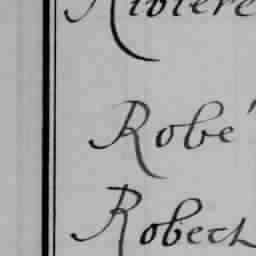 Riviere
Robe'
Robech